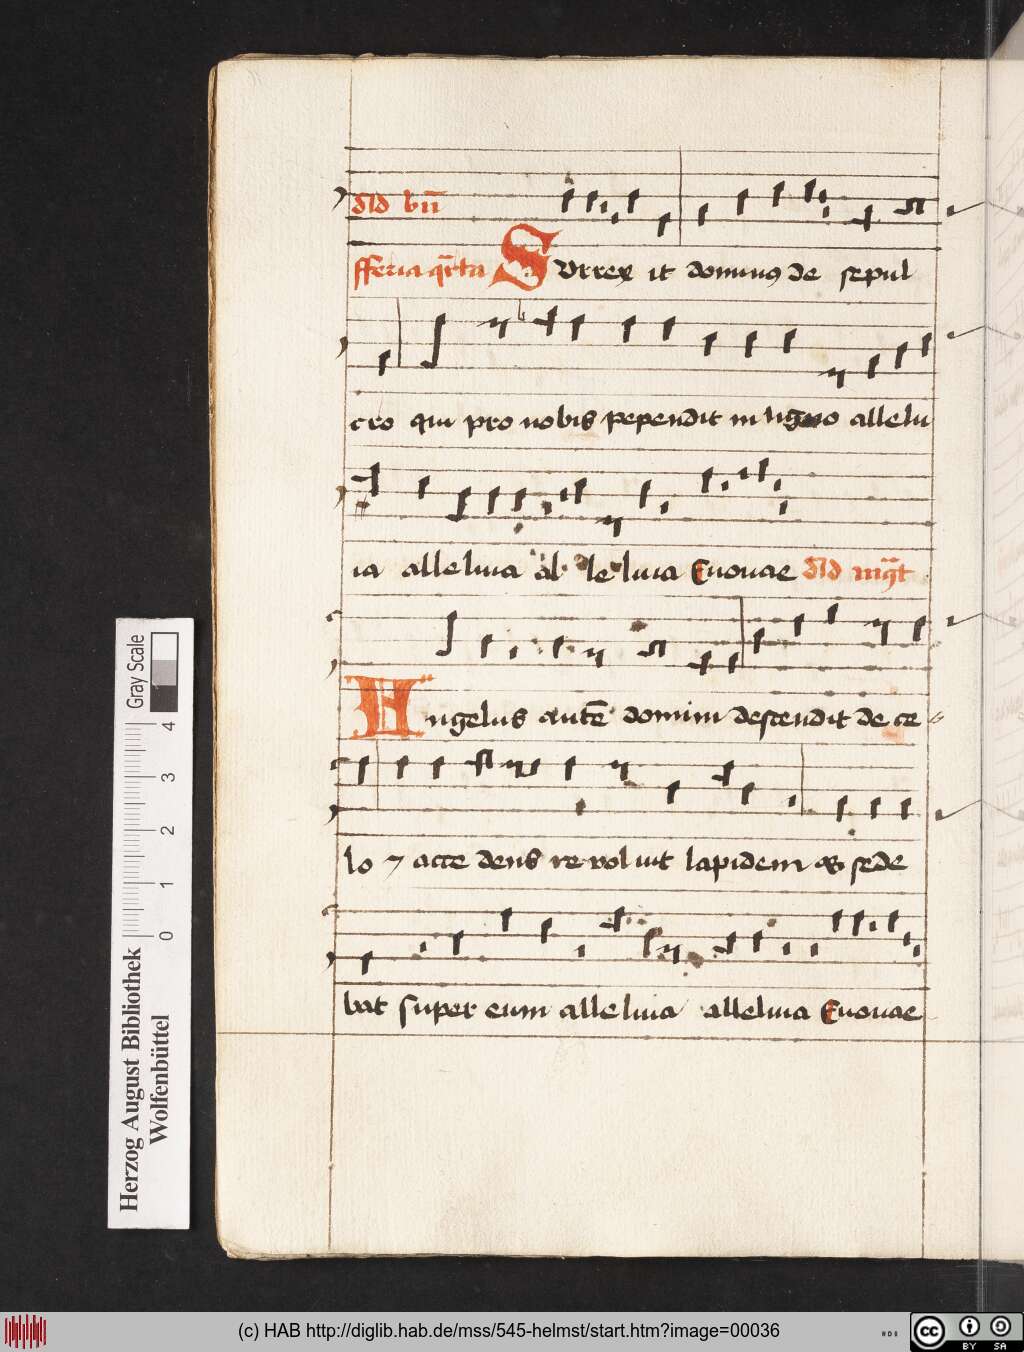 ad bn̄
fferia qrta Surrex it dominꝰ de sepul
cro qui pro nobis pependit in ligno allelu
ia alleluia al leluia Euouae ad mgt
Angelus autē domini descendit de ce
lo ⁊ acce dens re uol uit lapidem & sede
bat super eum alleluia alleluia Euouae
Herzog August Bibliothek
Wolfenbüttel
0 1 2 3 4
Gray Scale
(c) HAB http://diglib.hab.de/mss/545-helmst/start.htm?image=00036
cc BY SA